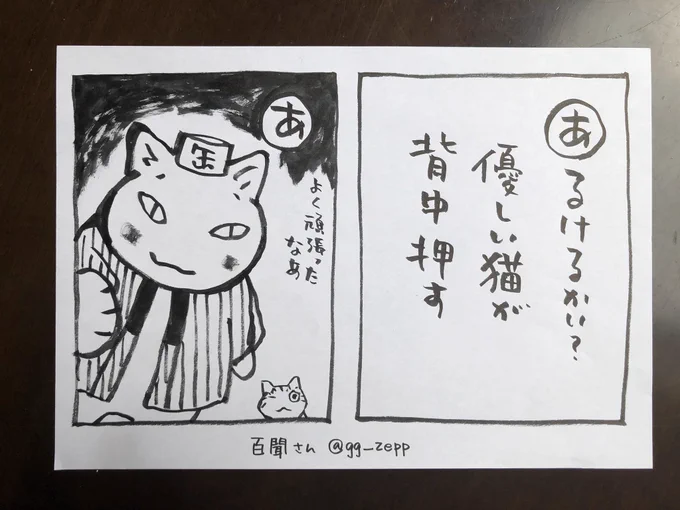 あるけるかい?
優しい猫が
背中押す
あ
缶
よく頑張った
なあ
百聞さん @gg_zepp